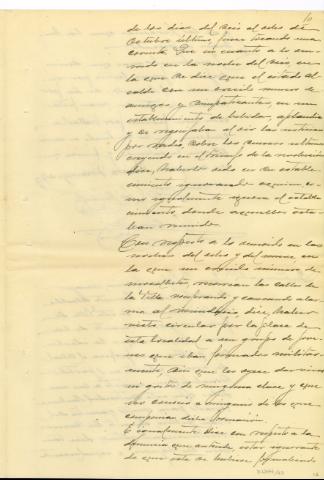 10
de los dias del seis al ocho de
Octubre último,
Que en cuanto a lo ocu-
rrido en la noche del seis, en
la que se dice que el citado al-
calde con un crecido numero de
amigos y simpatizantes, en un
establecimiento de bebidas, aplaudia
y se regocijaba al oir las noticias
por radio, sobre los sucesos ultimos
creyendo en el triunfo de la revolucion
dice, haberlo oido en su estable-
cimiento ignorando
igualmente el estable-
cimiento donde aquellos esta-
ban reunidos.
Con respecto a lo ocurrido en las
noches del ocho y del nueve, en
la que un crecido numero de
recorrian las calles de
la Villa y causando alar-
ma al vecindario, dice, haber
visto circular por la plaza de
esta localidad a un grupo de jove-
nes que iban formados militar-
mente, sin que les oyese dar vivas
ni gritos de ninguna clase y que
no conocio a ninguno de los que
componian dicha formación.
E igualmente dice con respecto a la
denuncia que antecede, estar ignorante
de que esta se hubiese formalizado